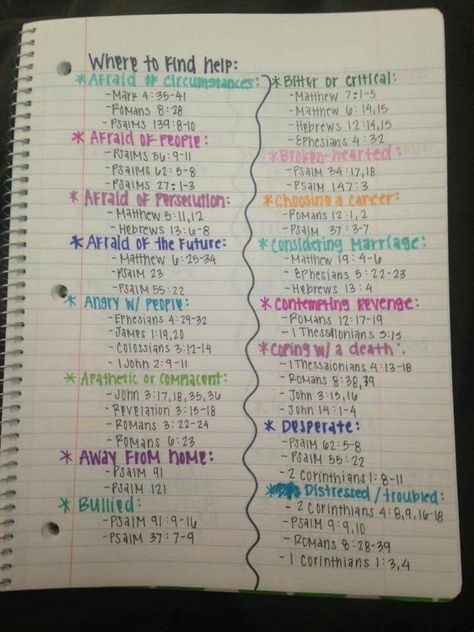 Where to find help:
*Afraid of circumstances:
-Mark 4:35-41
-Romans 8:28
-Psalms 139:8-10
*Afraid of People:
-Psalms 56:9-11
-Psalms 62:5-8
-Psalms 27:1-3
*Afraid of Persecution:
-Matthew 5:11,12
-Hebrews 13:6-8
*Afraid of the Future:
-Matthew 6:25-34
-Psalm 23
-Psalm 55:22
*Angry w/ People:
-Ephesians 4:29-32
-James 1:19,20
-Colossians 3:12-14
-1 John 2:9-11
*Apathetic or Complacent:
-John 3:17,18,35,36
-Revelation 3:15-18
-Romans 3:22-24
-Romans 6:23
*Away from home:
-Psalm 91
-Psalm 121
*Bullied:
-Psalm 91:9-16
-Psalm 37:7-9
*Bitter or Critical:
-Matthew 7:1-5
-Matthew 6:14,15
-Hebrews 12:14,15
-Ephesians 4:32
*Broken-hearted:
-Psalm 34:17,18
-Psalm 147:3
*Choosing a Career:
-Romans 12:1,2
-Psalm 37:3-7
*Considering Marriage:
-Matthew 19:4-6
-Ephesians 5:22-23
-Hebrews 13:4
*Contempting Revenge:
-Romans 12:17-19
-1 Thessalonians 5:15
*Coping w/ a death:
-1 Thessalonians 4:13-18
-Romans 8:38,39
-John 3:15,16
-John 14:1-4
*Desperate:
-Psalm 62:5-8
-Psalm 55:22
-2 Corinthians 1:8-11
*Distressed/troubled:
-2 Corinthians 4:8,9,16-18
-Psalm 9:9,10
-Romans 8:28-39
-1 Corinthians 1:3,4